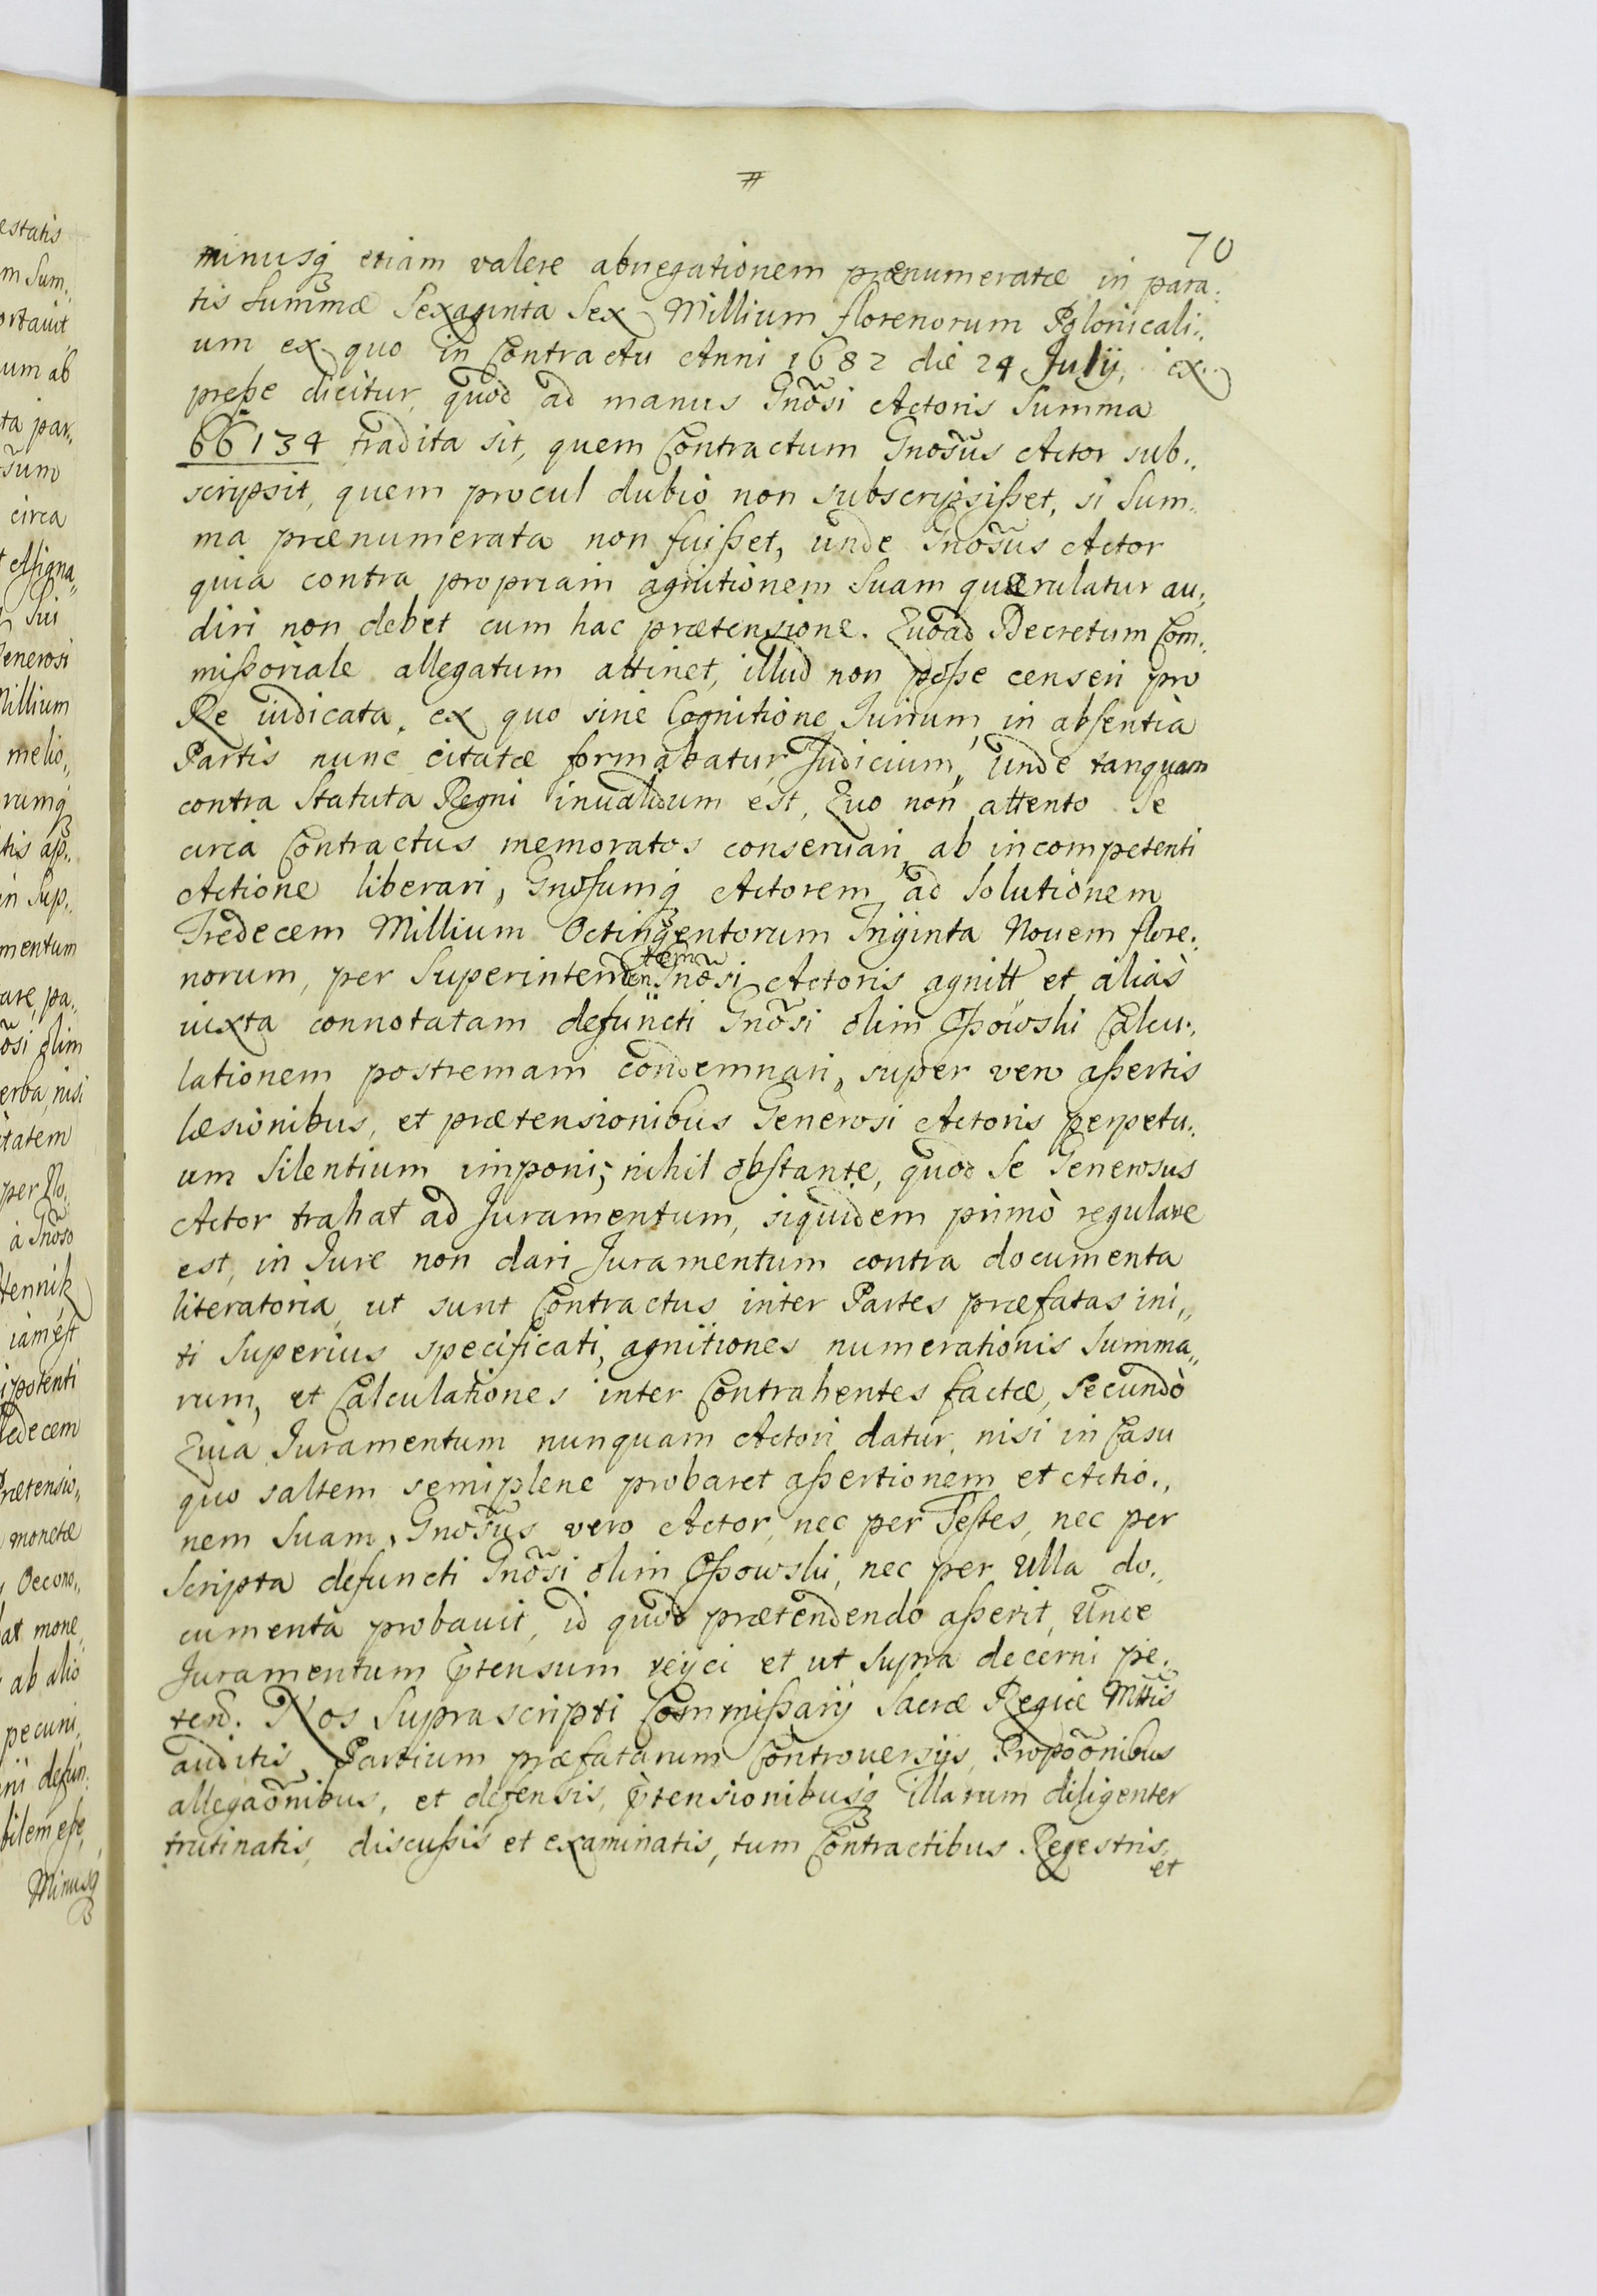 70
minusq́ etiam valere abnegationem prænumeratæ in para:
tis Summæ Sexaginta Sex Millium florenorum Polonicali:
um ex quo in Contractu Anni 1682 die 24 Julÿ, ex:
preße dicitur, quod ad manus Gnõsi Actoris Summa
66134 tradita sit, quem Contractum Gnosũs Actor sub:
scripsit, quem procul dubio non subscripsißet, si Sum:
ma prænumerata non fuißet, unde Gnosũs Actor
quia contra propriam agnitionem Suam quærulatur au:
diri non debet cum hac prætensione. Quoad Decretum Com:
mißoriale allegatum attinet, illud non poße censeri pro
Re iudicata, ex quo sine Cognitione Jurium, in absentia
Partis nunc citatæ formabatur Judicium, Unde tanquam
contra Statuta Regni inualidum est, Quo non attento Se
circa Contractus memoratos conseruari, ab incompetenti
Actione liberari, Gnõsumq́ Actorem ad Solutionem
Tredecem Millium Octingentorum Triginta Nouem flore:
norum, per Superintenden:tem Gnõsi Actoris agnitt et aliàs
iuxta connotatam defuncti Gnõsi olim Oßowski Calcu:
lationem postremam condemnari, super vero aßertis
læsionibus, et prætensionibus Generosi Actoris perpetu:
um Silentium imponi, nihil obstante, quod Se Generosus
Actor trahat ad Juramentum, siquidem primò regulare
est, in Jure non dari Juramentum contra documenta
literatoria, ut sunt Contractus inter Partes præfatas ini„
ti Superius specificati, agnitiones numerationis Summa„
rum, et Calculationes inter Contrahentes factæ, Secundò
Quia Juramentum nunquam Actori datur, nisi in Casu
quo saltem semiplene probaret aßertionem et Actio:
nem Suam, Gnosũs vero Actor, nec per Testes, nec per
Scripta defuncti Gnõsi olim Oßowski, nec per Ulla do:
cumenta probauit, id quod prætendendo aßerit, Unde
Juramentum p̃tensum reÿci et ut Supra decerni pe:
tend. Nos Suprascripti Commißarÿ Sacræ Regiæ Mttis
auditis Partium præfatarum Controuersÿs, Propoõnibus
allegaõnibus, et defensis, p̃tensionibusq́ illarum diligenter
trutinatis, discußis et examinatis, tum Contractibus Regestris,
et
estatis
m Sum:
ortauit
um ab
ta par:
circa
Assigna„
Sui
enerosi
Millium
melio„
rumq́
in Sup:
mentum
õsi olim
erba, nisi
itatem
à Gnõso
Hennik
iam est
ipotenti
edecem
Prætensio„
monetæ
Oecono„
at mone„
ab alio
pecuni„
defun:
bilem eße,
Minusq́